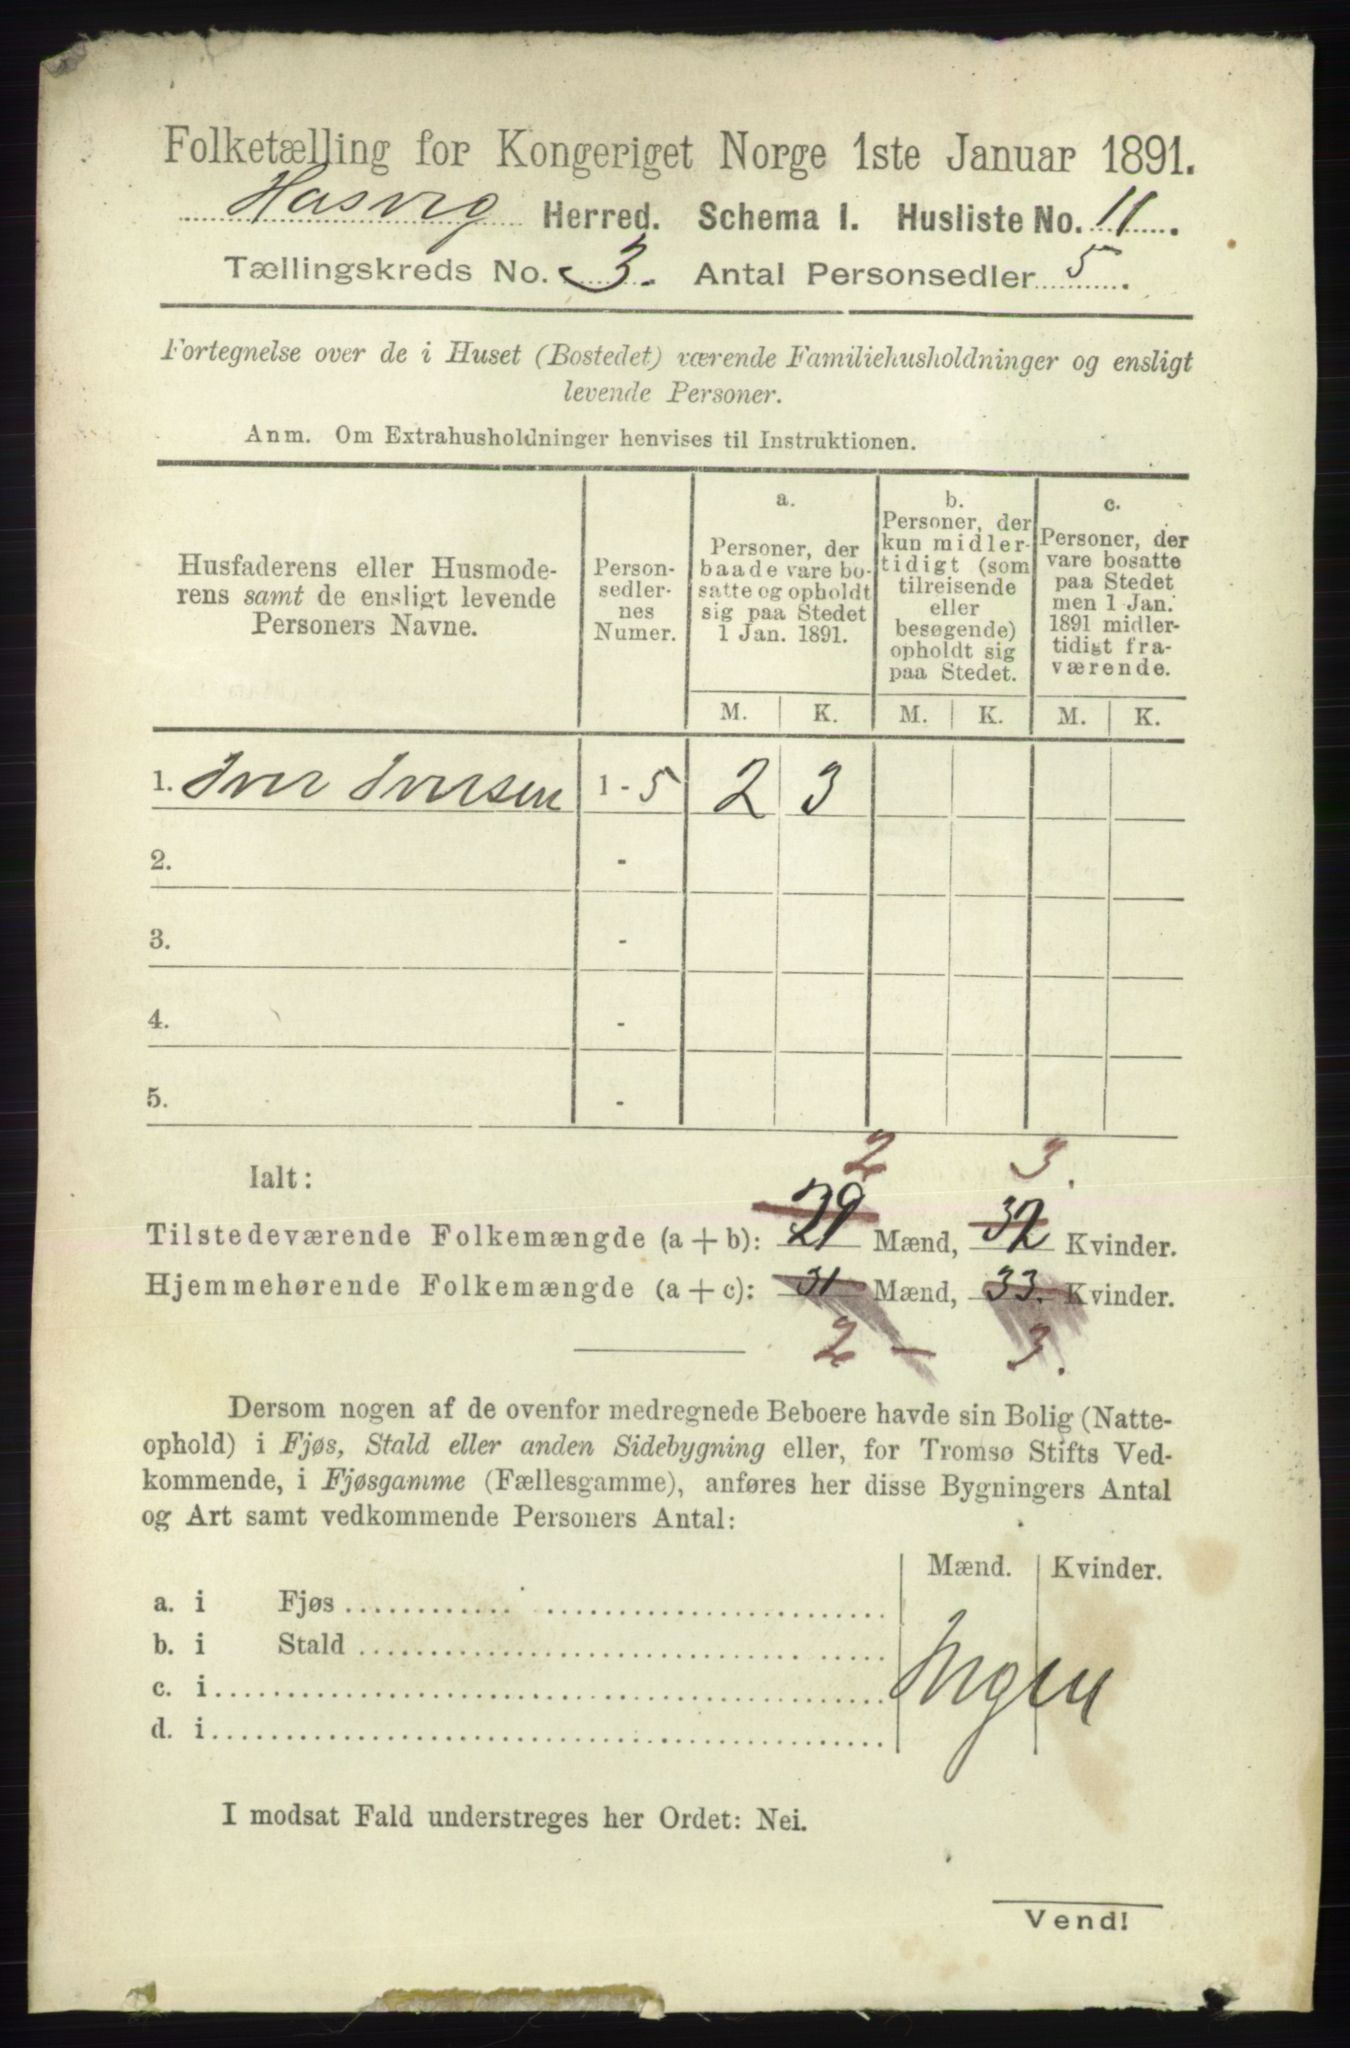 Folketælling for Kongeriget Norge 1ste Januar 1891.
Hasvig Herred. Schema I. Husliste No. 11.
Tællingskreds No. 3. Antal Personsedler 5.
Fortegnelse over de i Huset (Bostedet) værende Familiehusholdninger og ensligt
levende Personer.
Anm. Om Extrahusholdninger henvises til Instruktionen.
Husfaderens eller Husmode-
rens samt de ensligt levende
Personers Navne.
Person-
sedler-
nes
Numer.
a.
Personer, der
baade vare bo-
satte og opholdt
sig paa Stedet
1 Jan. 1891.
b.
Personer, der
kun midler-
tidigt (som
tilreisende
eller
besøgende)
opholdt sig
paa Stedet.
c.
Personer, der
vare bosatte
paa Stedet
men 1 Jan.
1891 midler-
tidigt fra-
værende.
M. K. M. K. M. K.
1. Iver Iversen 1 - 5 2 3
2. -
3. -
4. -
5. -
2 3.
Ialt:
Tilstedeværende Folkemængde (a + b): 29 Mænd, 32 Kvinder.
Hjemmehørende Folkemængde (a + c): 31 Mænd, 33. Kvinder.
2 - 3.
Dersom nogen af de ovenfor medregnede Beboere havde sin Bolig (Natte-
ophold) i Fjøs, Stald eller anden Sidebygning eller, for Tromsø Stifts Ved-
kommende, i Fjøsgamme (Fællesgamme), anføres her disse Bygningers Antal
og Art samt vedkommende Personers Antal:
Mænd. Kvinder.
a. i Fjøs
b. i Stald
c. i
Ingen
d. i
I modsat Fald understreges her Ordet: Nei.
Vend!